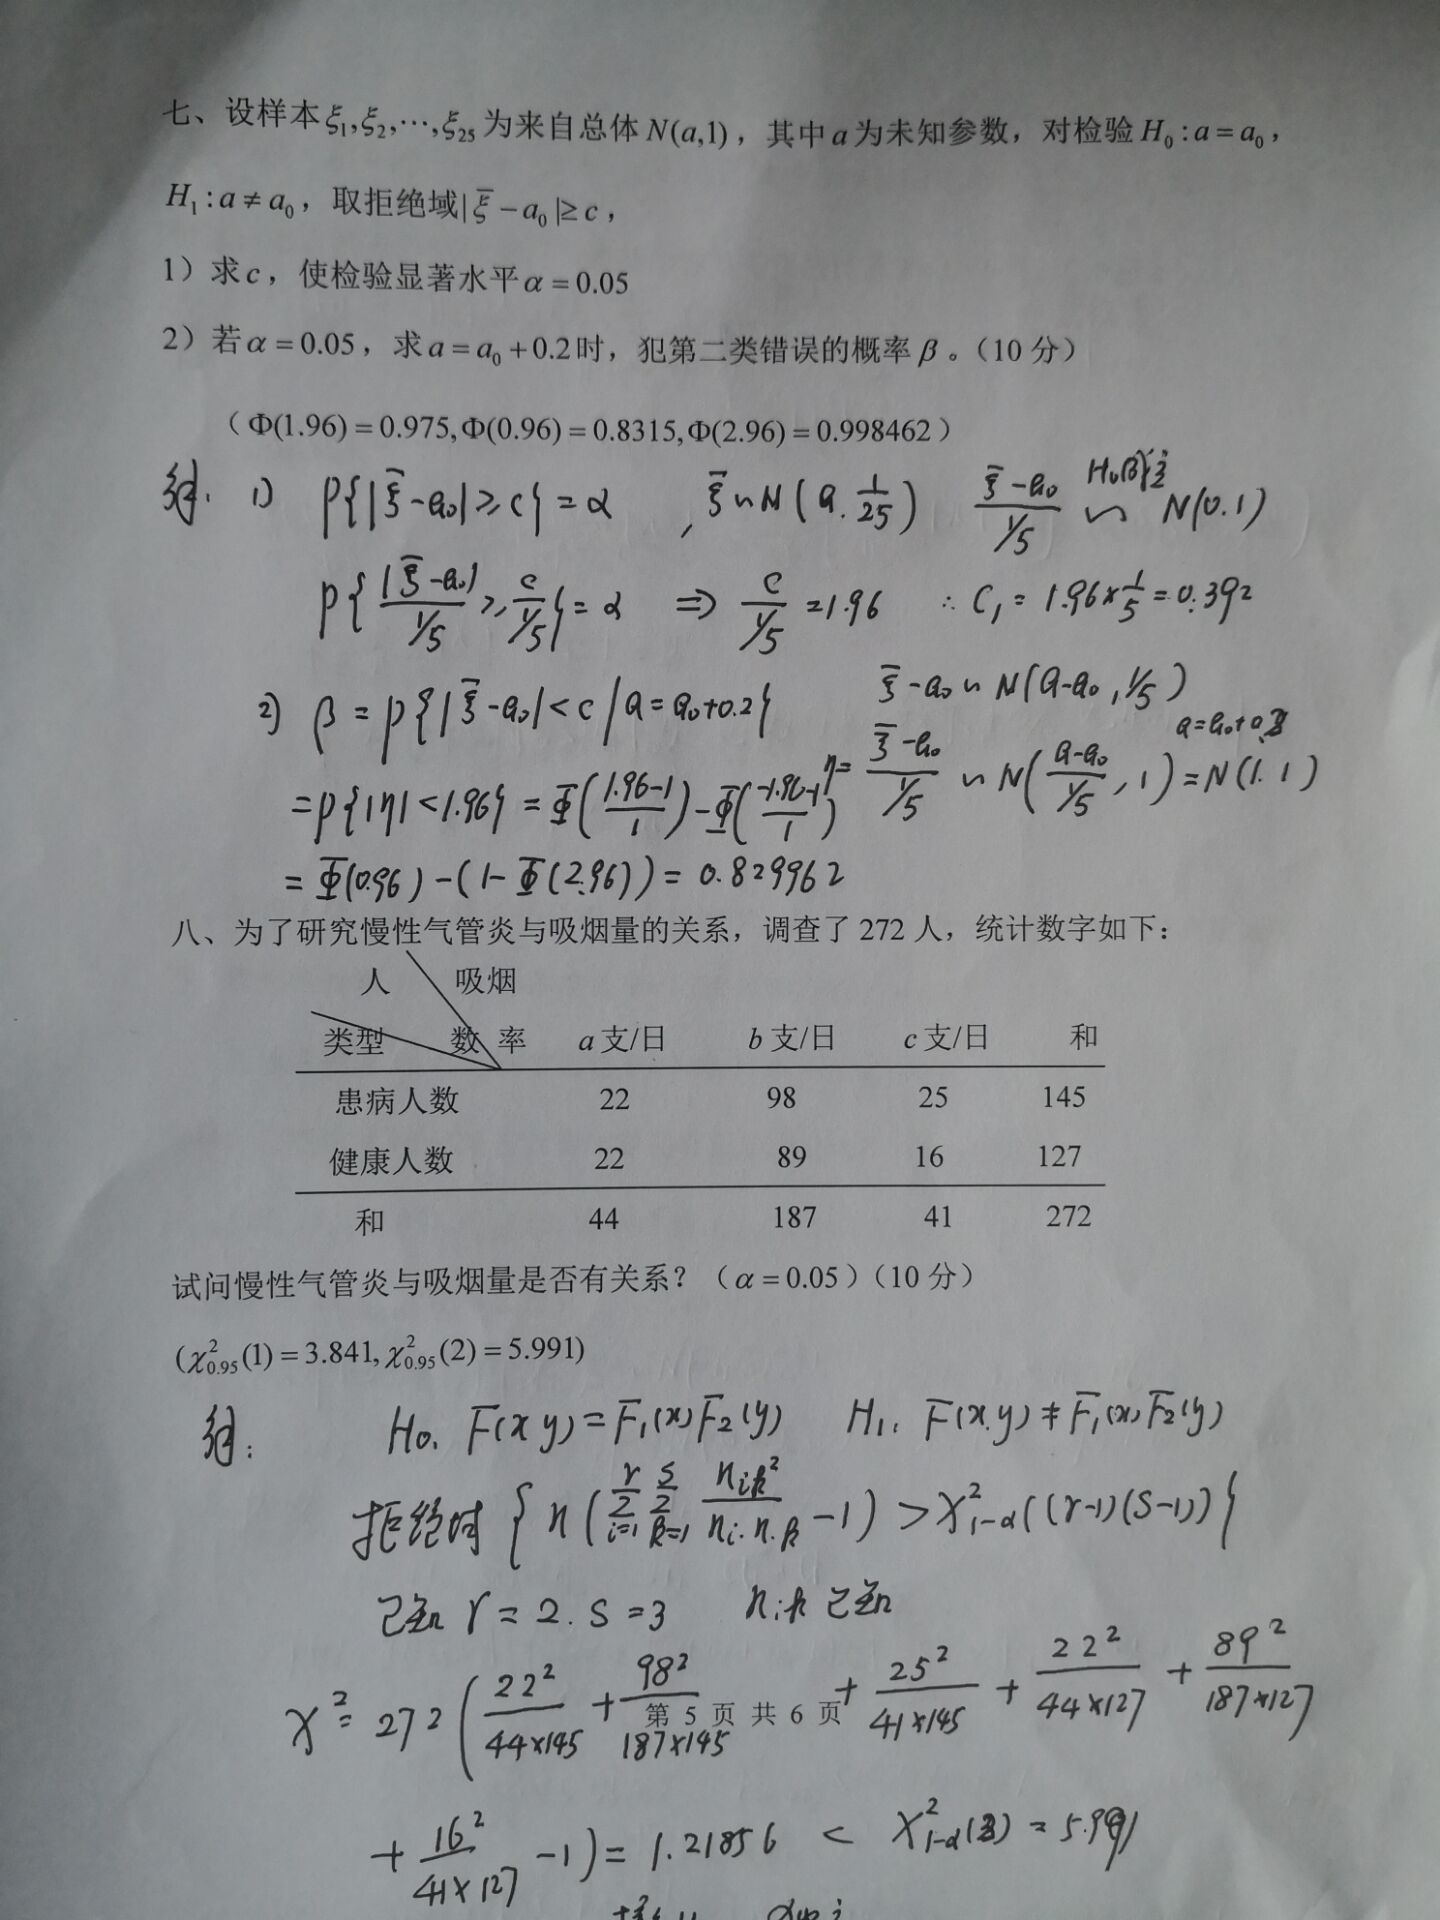 七、设样本ξ₁,ξ₂,⋯,ξ₂₅为来自总体N(a,1)，其中a为未知参数，对检验H₀:a=a₀，
H₁:a≠a₀，取拒绝域|ξ̄−a₀|≥c，
1）求c，使检验显著水平α=0.05
2）若α=0.05，求a=a₀+0.2时，犯第二类错误的概率β。（10分）
（Φ(1.96)=0.975,Φ(0.96)=0.8315,Φ(2.96)=0.998462）
解. 1) P{|ξ̄-a₀|≥c}=α , ξ̄~N(a.1/25) (ξ̄-a₀)/(1/5) H₀成立 ~ N(0.1)
P{|ξ̄-a₀|/(1/5)≥c/(1/5)}=α ⇒ c/(1/5)=1.96 ∴ C₁=1.96×1/5=0.392
2) β=P{|ξ̄-a₀|<c|a=a₀+0.2} ξ̄-a₀~N(a-a₀,1/5)
=P{|η|<1.96}=Φ((1.96-1)/1)-Φ((-1.96-1)/1) η=(ξ̄-a₀)/(1/5)~N((a-a₀)/(1/5),1) a=a₀+0.2 =N(1.1)
=Φ(0.96)-(1-Φ(2.96))=0.829962
八、为了研究慢性气管炎与吸烟量的关系，调查了272人，统计数字如下：
人 吸烟
类型 数 率 a支/日 b支/日 c支/日 和
患病人数 22 98 25 145
健康人数 22 89 16 127
和 44 187 41 272
试问慢性气管炎与吸烟量是否有关系？（α=0.05）（10分）
(χ²₀.₉₅(1)=3.841,χ²₀.₉₅(2)=5.991)
解: H₀. F(x y)=F₁(x)F₂(y) H₁. F(x.y)≠F₁(x)F₂(y)
拒绝域{n(Σᵢ₌₁^r Σₖ₌₁^s nᵢₖ²/(nᵢ.n.ₖ)-1)>χ²₁₋α((r-1)(s-1))}
已知r=2.s=3 nᵢₖ已知
χ²=272(22²/(44×145)+98²/(187×145)+25²/(41×145)+22²/(44×127)+89²/(187×127)
第 5 页 共 6 页
+16²/(41×127)-1)=1.21856 < χ²₁₋α(2)=5.991